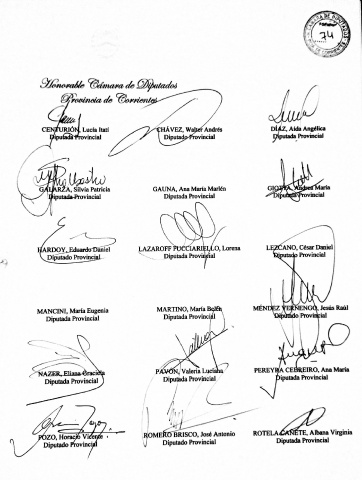 CÁMARA DE DIPUTADOS
74
Honorable Cámara de Diputados
Provincia de Corrientes
CENTURIÓN, Lucía Itatí
Diputada Provincial
CHÁVEZ, Walter Andrés
Diputado Provincial
DÍAZ, Aida Angélica
Diputada Provincial
GALARZA, Silvia Patricia
Diputada Provincial
GAUNA, Ana María Marlén
Diputada Provincial
GIOTTA, Andrea María
Diputada Provincial
HARDOY, Eduardo Daniel
Diputado Provincial
LAZAROFF PUCCIARIELLO, Lorena
Diputada Provincial
LEZCANO, César Daniel
Diputado Provincial
MANCINI, María Eugenia
Diputada Provincial
MARTINO, María Belén
Diputada Provincial
MÉNDEZ VERNENGO, Jesús Raúl
Diputado Provincial
NAZER, Eliana Graciela
Diputada Provincial
PAVÓN, Valeria Luciana
Diputada Provincial
PEREYRA CEBREIRO, Ana María
Diputada Provincial
POZO, Horacio Vicente
Diputado Provincial
ROMERO BRISCO, José Antonio
Diputado Provincial
ROTELA CAÑETE, Albana Virginia
Diputada Provincial